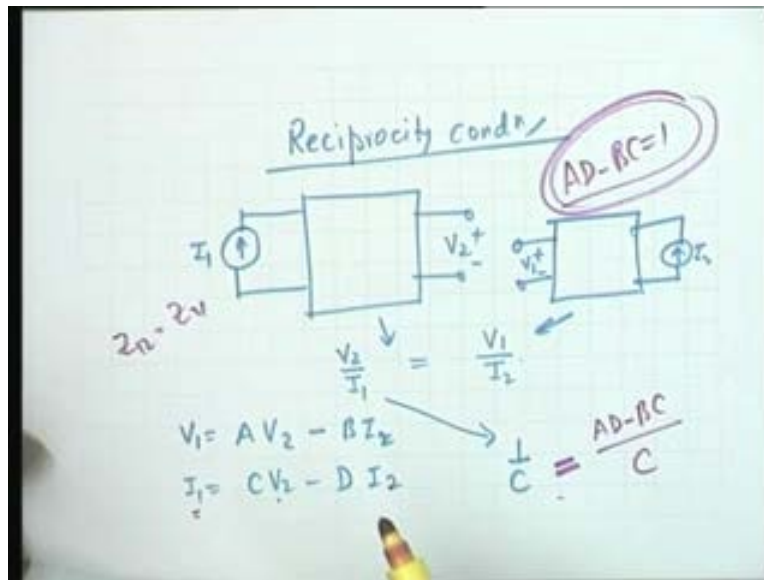 Reciprocity condn/
AD-BC=1
I₁
V₂ +
-
V₁ +
-
I₂
Z₁₂ = Z₂₁
V₂/I₁ = V₁/I₂
V₁ = AV₂ - BI₂
I₁ = CV₂ - D I₂
1/C = AD-BC/C